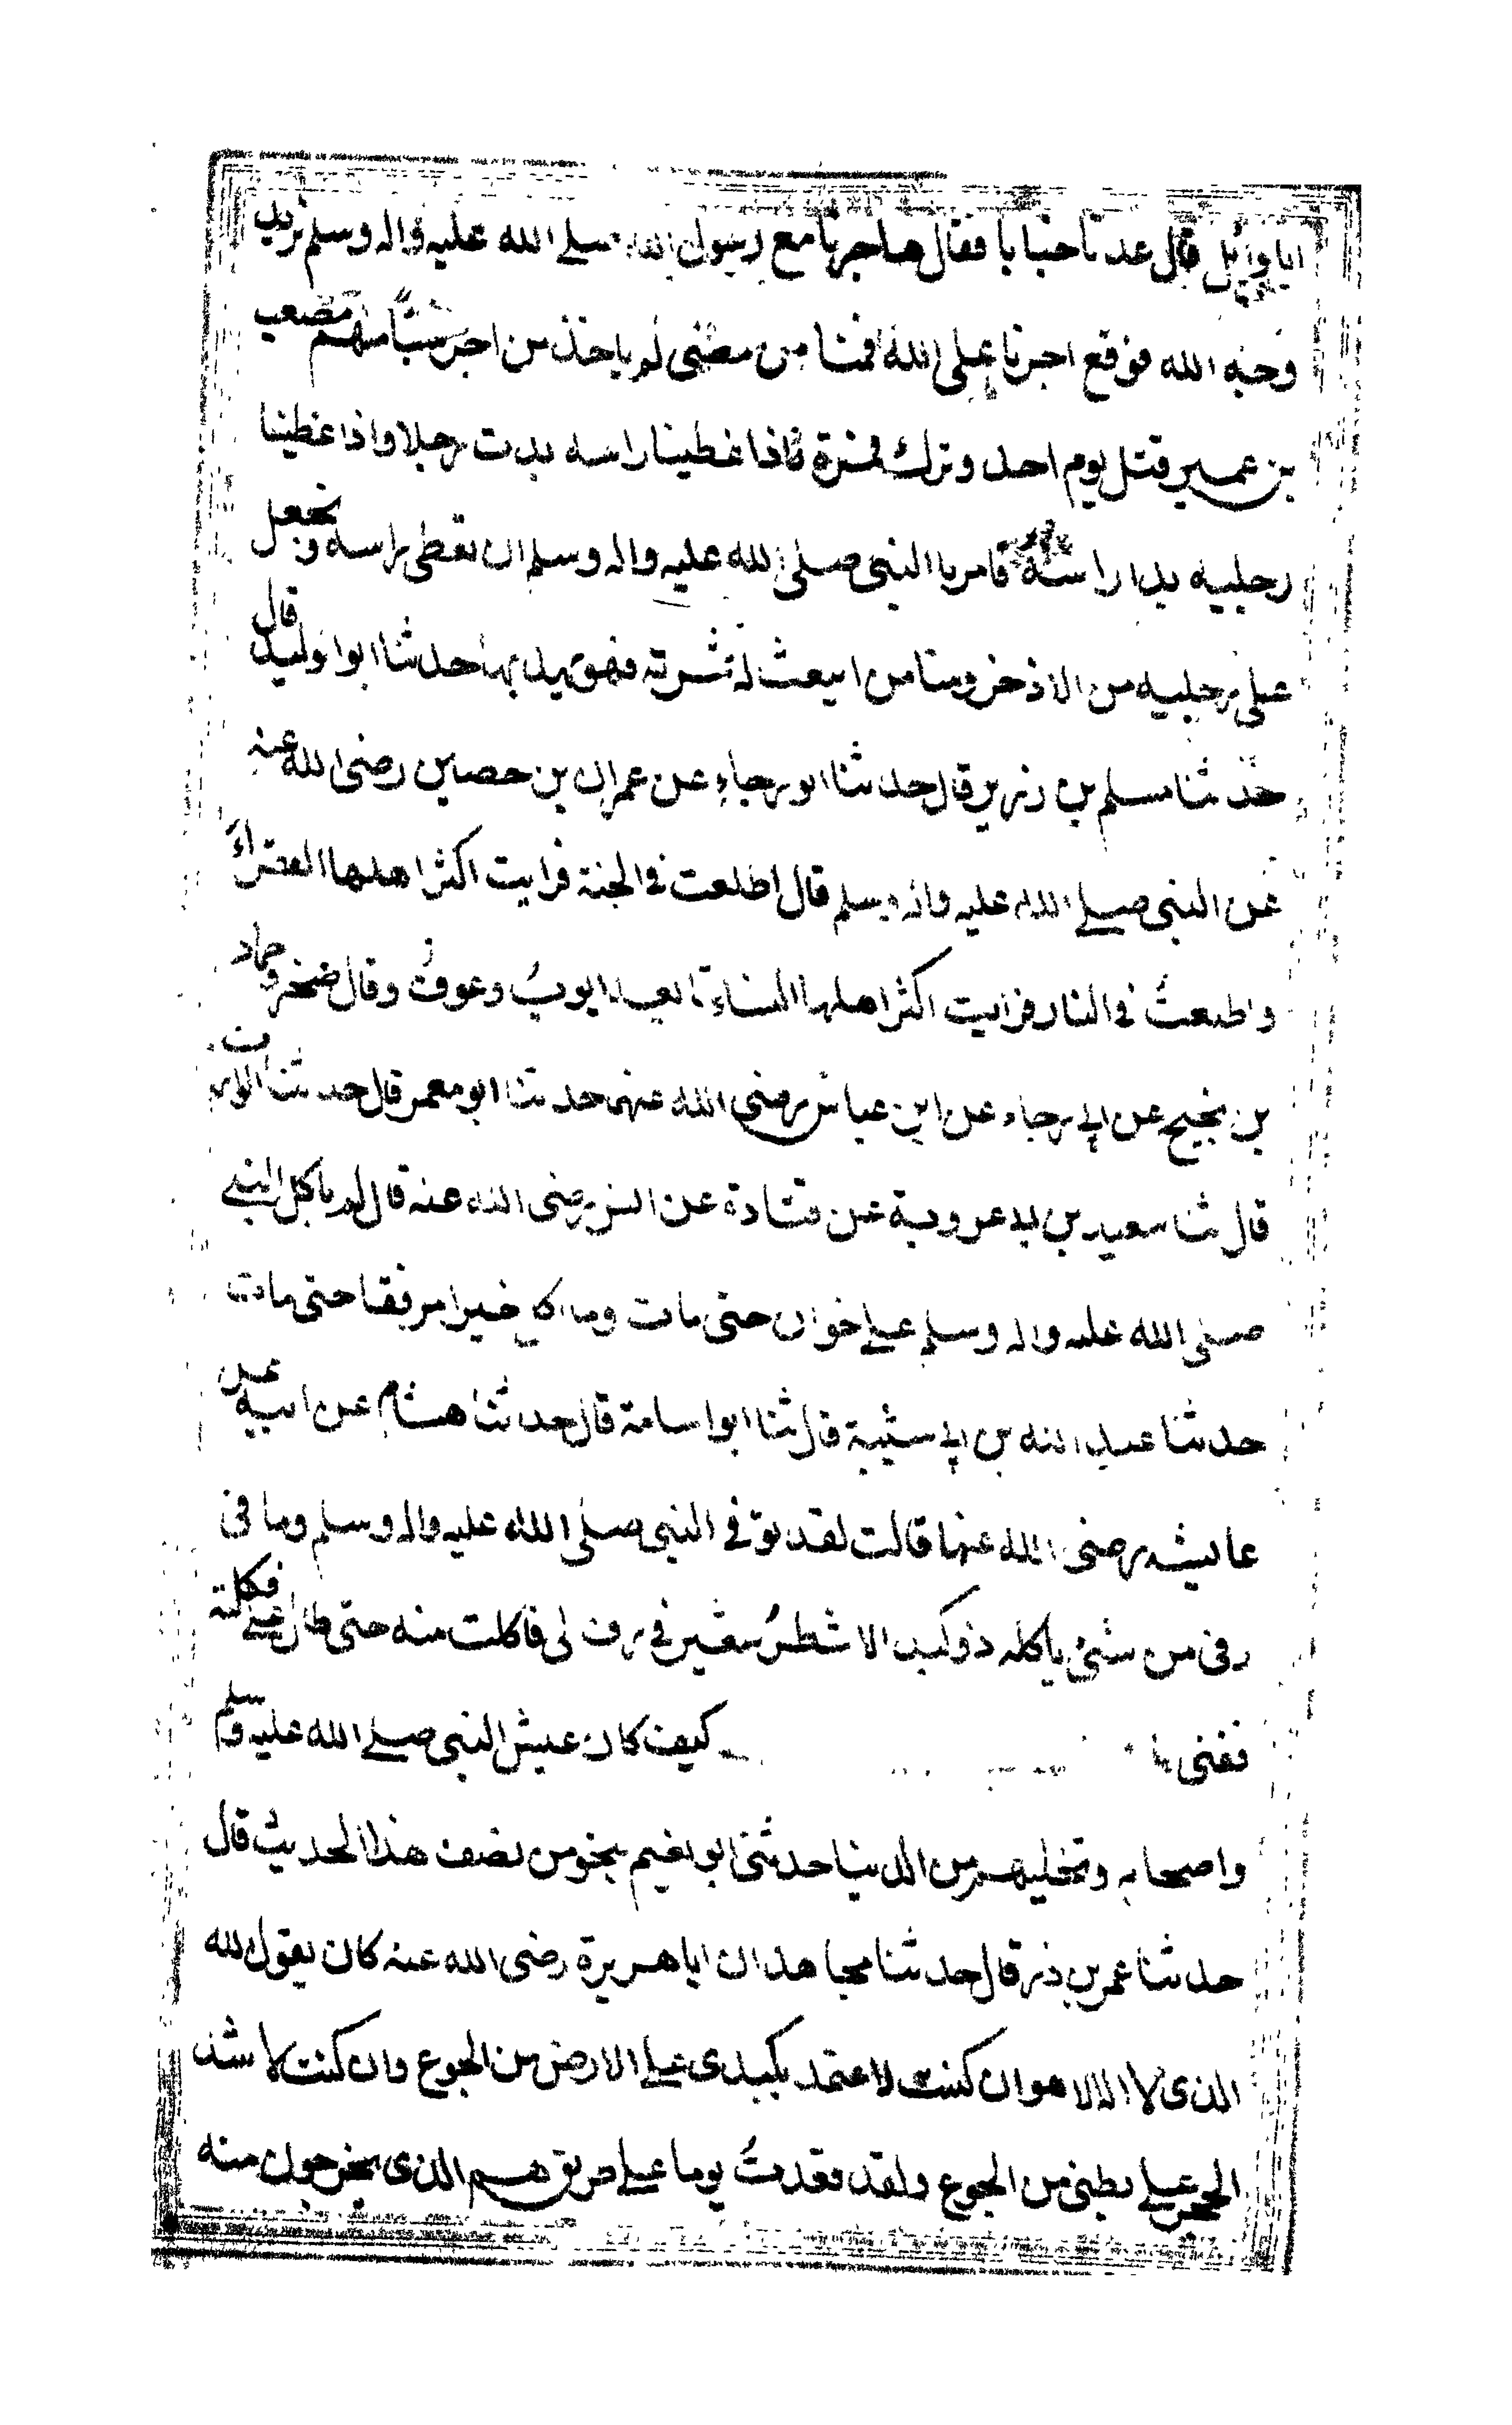 ابا وائل قال عدنا خبابا فقال هاجرنا مع رسول الله صلى الله عليه واله وسلم نريد
وجه الله فوقع اجرنا على الله فمنا من مضى لم ياخذ من اجره شيئا منهم مصعب
بن عمير قتل يوم احد وترك نمرة فاذا غطينا راسه بدت رجلاه واذا غطينا
رجليه بدا راسه فامرنا النبي صلى الله عليه واله وسلم ان نغطى راسه ونجعل
على رجليه من الاذخر ومنا من اينعت له ثمرته فهو يهدبها حدثنا ابوا لوليد قال
حدثنا مسلم بن زرير قال حدثنا ابو رجاء عن عمران بن حصين رضى الله عنه
عن النبي صلے الله عليه واله وسلم قال اطلعت في الجنة فرايت اكثر اهلها الفقراء
واطلعت في النار فرايت اكثر اهلها النساء تابعه ايوب وعوف وقال صخر وحماد
بن نجيح عن ابي رجاء عن ابن عباس رضى الله عنهما حدثنا ابو معمر قال حدثنا الوارث
قال ثنا سعيد بن ابي عروبة عن قتادة عن انس رضى الله عنه قال لم ياكل النبي
صلى الله عليه واله وسلم علے خوان حتى مات وما اكل خبزا مرققا حتى مات
حدثنا عبد الله بن ابي شيبة قال ثنا ابوا سامة قال حدثنا هشام عن ابيه عن
عايشه رضى الله عنها قالت لقد توفي النبي صلى الله عليه واله وسلم وما في
رفى من شئ ياكله ذو كبد الا شطر شعير في رف لى فاكلت منه حتى طال علے فكلته
ففنى با كيف كان عيش النبي صلے الله عليه وسلم
واصحابه وتخليهم من الدنيا حدثنى ابو نعيم بنحو من نصف هذا الحديث قال
حدثنا عمر بن ذر قال حدثنا مجاهد ان ابا هريرة رضى الله عنه كان يقول لله
الذى لا اله الا هو ان كنت لاعتمد بكبدى علے الارض من الجوع وان كنت لا شد
الحجر علے بطنى من الجوع ولقد قعدت يوما علے طريقهم الذى يخرجون منه